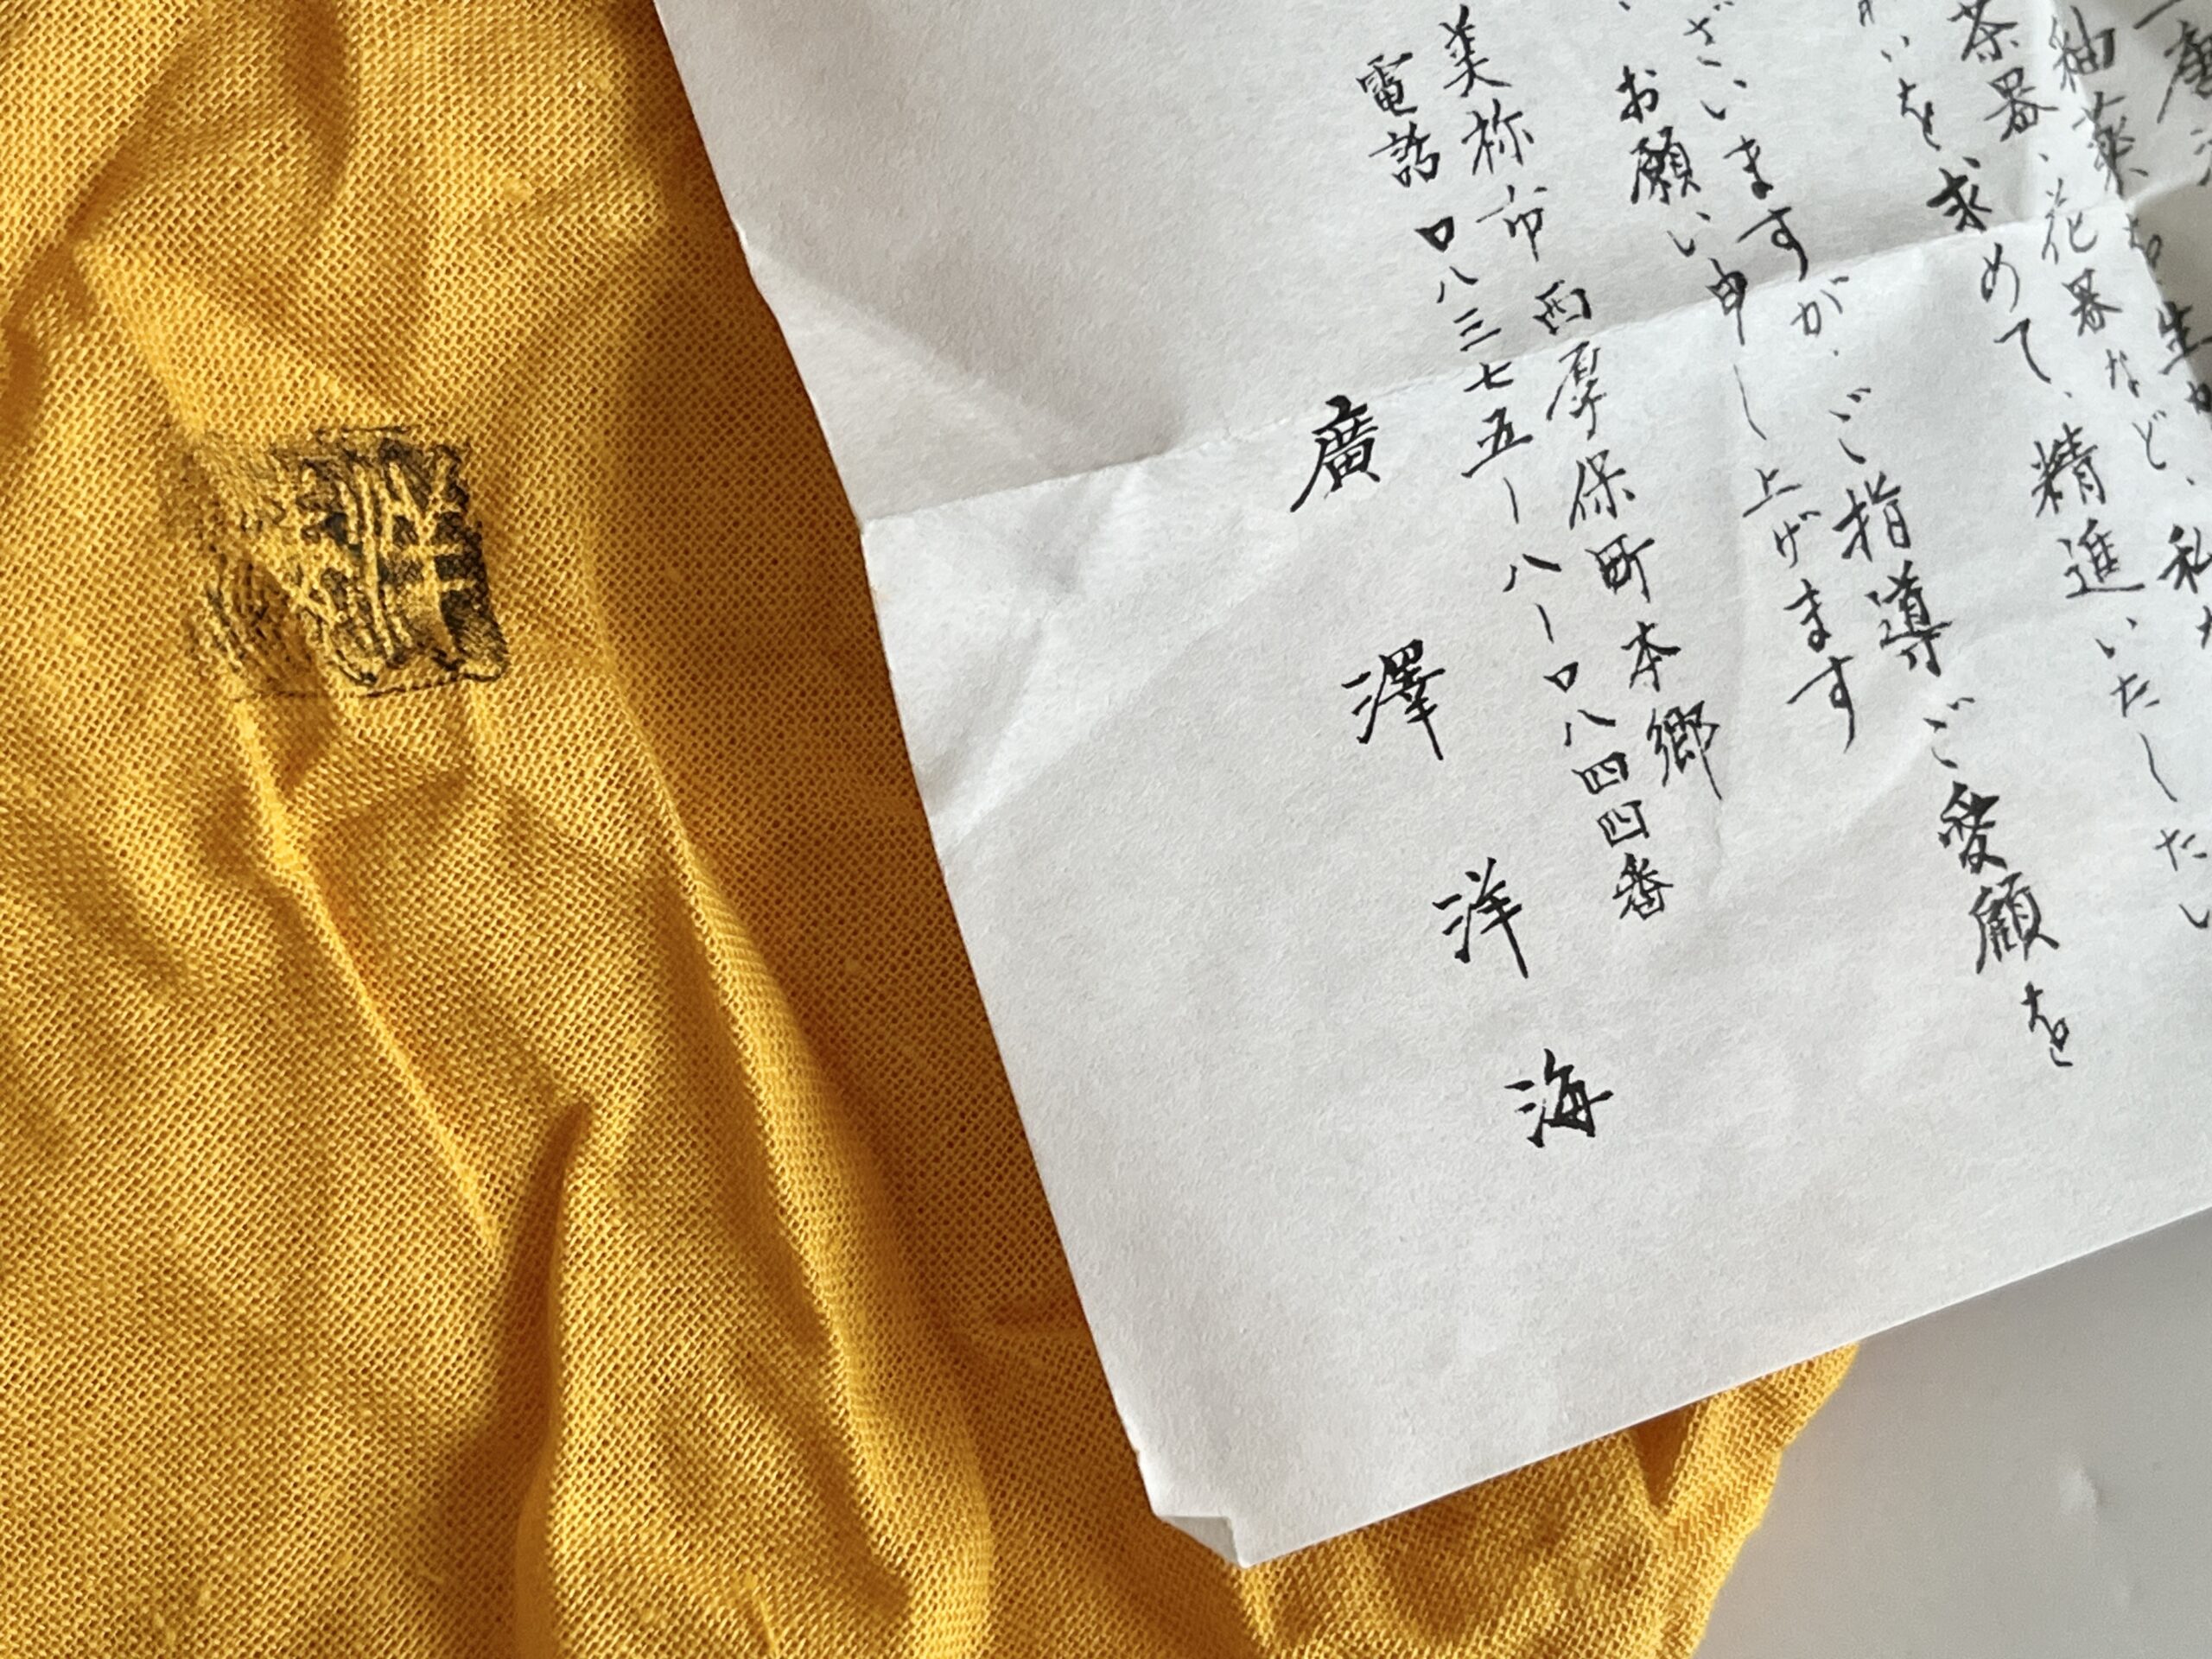 釉薬を生か
茶器、花器など、私
いを求めて、精進いたしたい
ざいますが、ご指導ご愛顧を
お願い申し上げます
美祢市西厚保町本郷
電話〇八三七五ー八ー〇八四四番
廣澤洋海